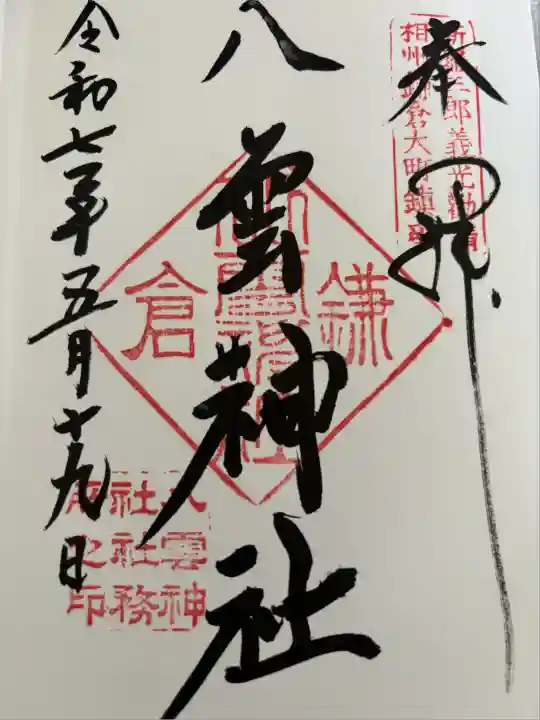 奉拝
新羅三郎義光勧請
相州鎌倉大町鎮座
八雲神社
鎌倉
八雲神
社社務
所之印
令和七年五月十九日